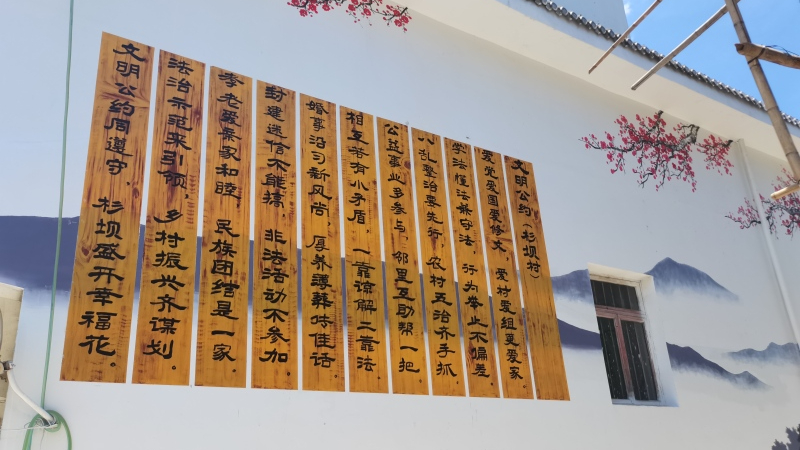 文明公约(杉坝村)
爱党爱国爱修文,爱村爱组更爱家。
学法懂法兼守法,行为举止不偏差。
八乱整治要先行,农村五治齐手抓。
公益事业多参与,邻里互助帮一把。
相互若有小矛盾,一靠谅解二靠法
婚事沿习新风尚 厚养薄葬传佳话。
封建迷信不能搞 非法活动不参加。
孝老爱亲家和睦,民族团结是一家。
法治示范来引领,乡村振兴齐谋划。
文明公约同遵守,杉坝盛开幸福花。